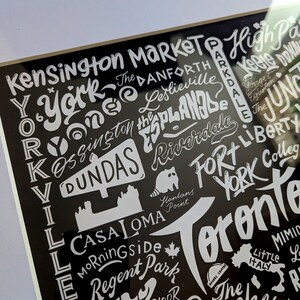 Kensington Market
High Park
York
The Danforth
PARKDALE
YORKVILLE
Yonge
Leslieville
the Esplanade
Ossington
Riverdale
JUN
LIBERTY
DUNDAS
FORT YORK
Colleg
Hanlans Point
CASA LOMA
Toronto
MORNINGSIDE
MIMIC
LITTLE ITALY
Regent Park
The